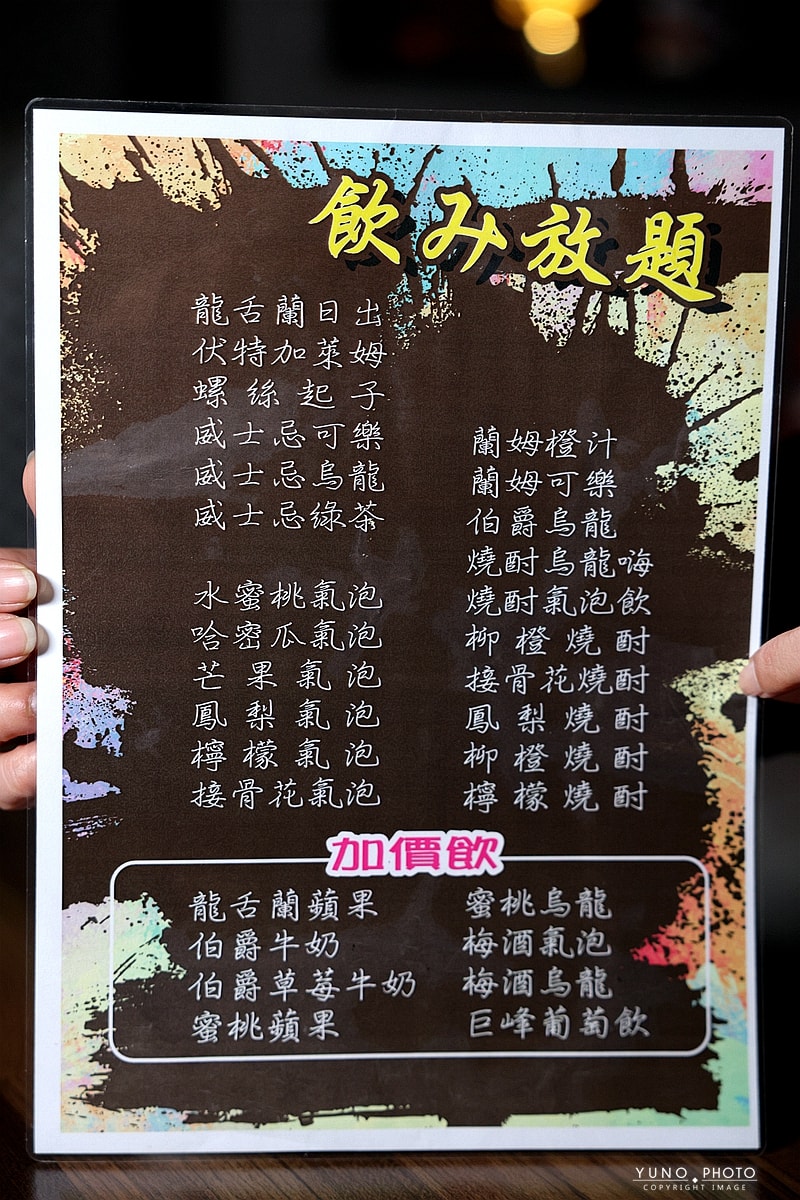 飲み放題
龍舌蘭日出
伏特加萊姆
螺絲起子
威士忌可樂
威士忌烏龍
威士忌綠茶
水蜜桃氣泡
哈密瓜氣泡
芒果氣泡
鳳梨氣泡
檸檬氣泡
接骨花氣泡
蘭姆橙汁
蘭姆可樂
伯爵烏龍
燒酎烏龍嗨
燒酎氣泡飲
柳橙燒酎
接骨花燒酎
鳳梨燒酎
柳橙燒酎
檸檬燒酎
加價飲
龍舌蘭蘋果
伯爵牛奶
伯爵草莓牛奶
蜜桃蘋果
蜜桃烏龍
梅酒氣泡
梅酒烏龍
巨峰葡萄飲
YUNO.PHOTO
COPYRIGHT IMAGE